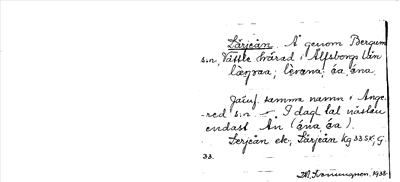 Lärjeån. Å genom Bergum
s:n, Vättle härad i Älfsborgs län
lærjaa; lèrana; åa, åna.
Jämf. samma namn i Ange-
red s:n. — I dagl. tal nästan
endast Ån (åna, åa).
Lerjeån ek; Lärjeån Kg 33 SK, G.
33.
1938.